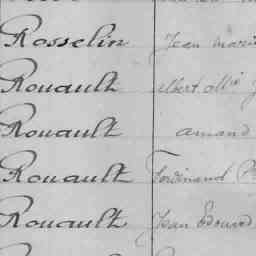 Rosselin Jean Marie
Rouault Albert
Rouault amand
Rouault Ferdinand
Rouault Jean Edouard